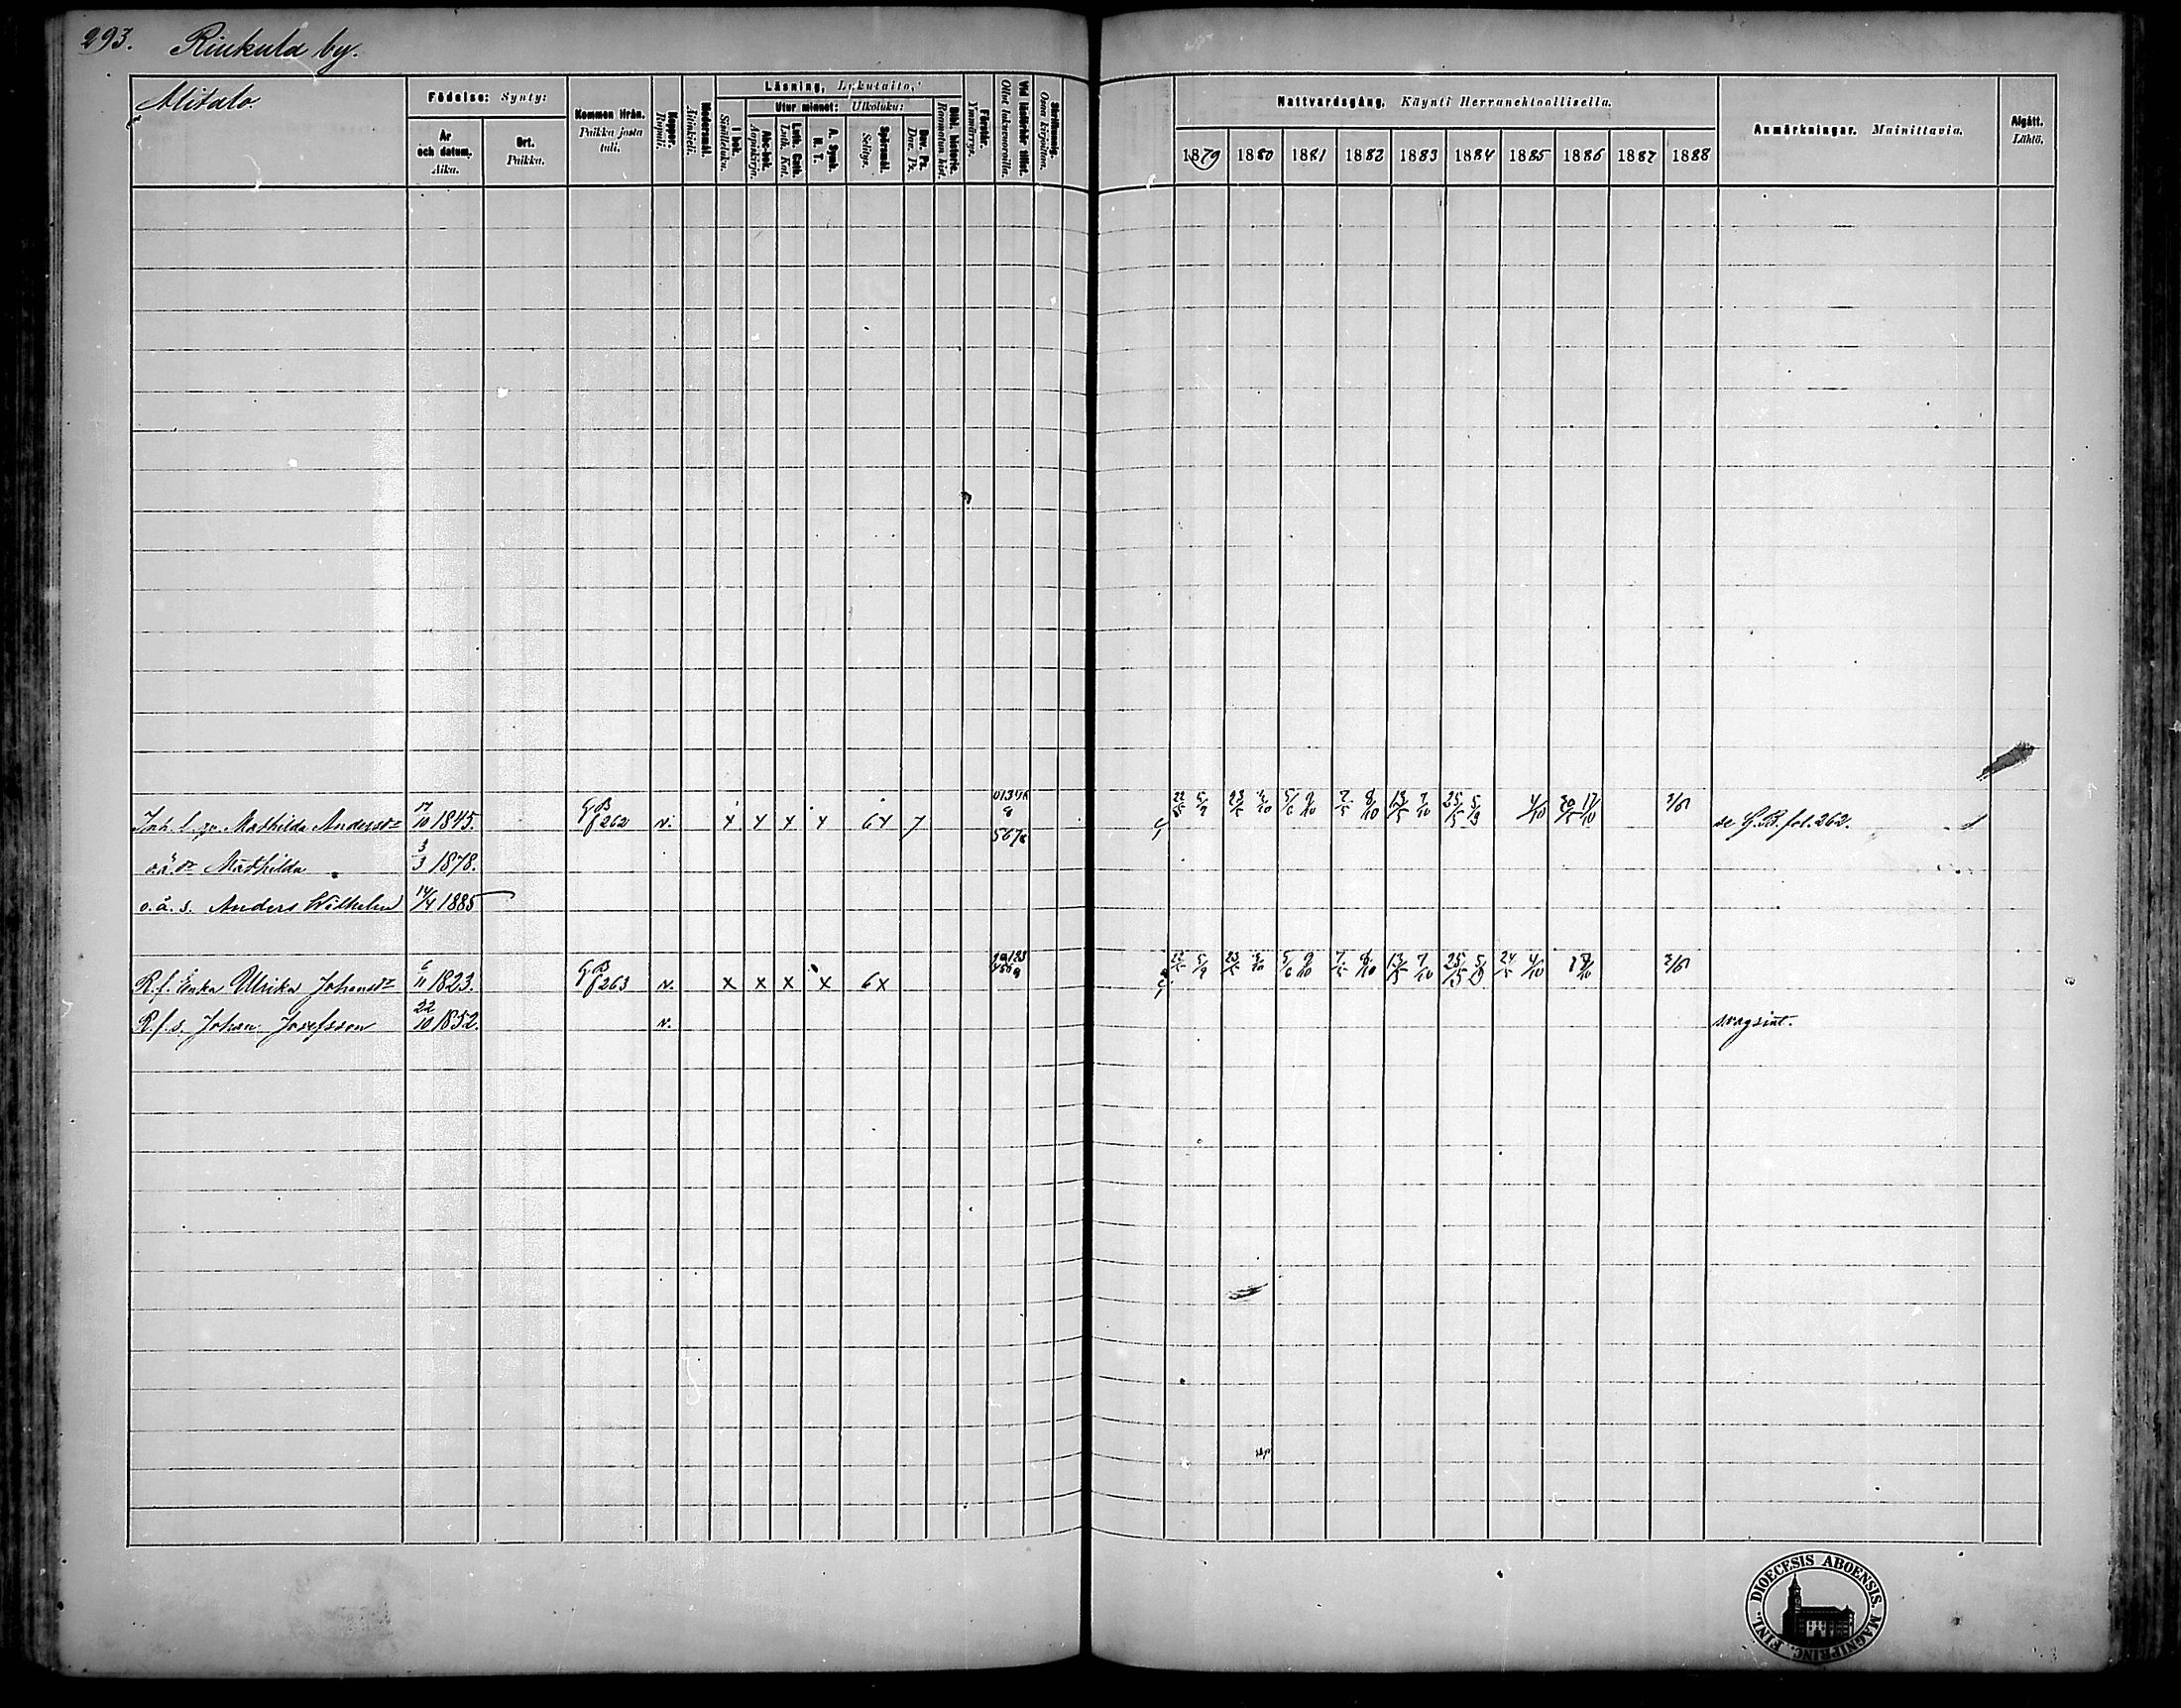 293. Rinkula by.
Alitalo.
Födelse: Synty:
År och datum. Aika.
Ort. Paikka.
Kommen ifrån. Paikka josta tuli.
Koppor. Rupuli.
Modersmål. Äitinkieli.
Läsning, Lukutaito,
I bok. Sisälleluku.
Utur minnet: Ulkoluku:
Abc-bok. Aapiskirja.
Luth. Cath. Luth. Kat.
A. Symb. H. T.
Spörsmål. Selitys.
Dav. Ps. Dav. Ps.
Bibl. historie. Raamatun hist.
Förstår. Ymmärrys.
Vid läsförhör tillst. Ollut lukuvuoroilla.
Skrifkunnig. Osaa kirjoittaa.
Nattvardsgång. Käynti Herranehtoollisella.
1879 1880 1881 1882 1883 1884 1885 1886 1887 1888
Anmärkningar. Mainittavia.
Afgått. Lähtö.
Inh. f. Mathilda Andersdr 17/10 1845. GB f 262 v. x x x x 6x 7 5678 22/5 5/9 23/5 5/6 9/10 7/5 8/10 13/5 7/10 25/5 5/9 4/10 30/5 17/10 se G.B. fol. 262.
o.ä. dr Mathilda 3/3 1878.
o.ä. s. Anders Wilhelm 14/4 1885
R.f. Enka Ulrika Johansdr 6/11 1823. GB f 263 v. x x x x 6x 22/5 5/9 23/5 5/6 9/10 7/5 8/10 13/5 7/10 25/5 5/9 24/5 4/10 17/10
R.f. s. Johan Josefsson 22/10 1852. v. svagsint.
FINL. DIOECESIS ABOENSIS. MAGNI PRINC.